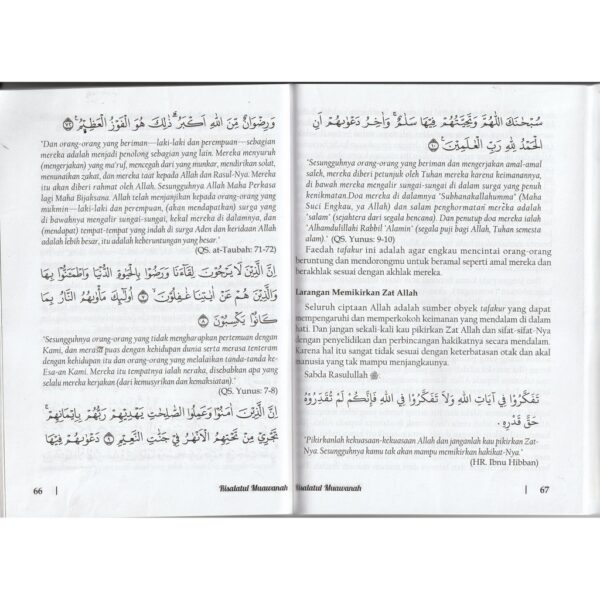 وَرِضْوَانٌ مِّنَ اللّٰهِ اَكْبَرُ ۗ ذٰلِكَ هُوَ الْفَوْزُ الْعَظِيْمُ ۝٧٢
"Dan orang-orang yang beriman—laki-laki dan perempuan—sebagian
mereka adalah menjadi penolong sebagian yang lain. Mereka menyuruh
(mengerjakan) yang ma'ruf, mencegah dari yang munkar, mendirikan solat,
menunaikan zakat, dan mereka taat kepada Allah dan Rasul-Nya. Mereka
itu akan diberi rahmat oleh Allah. Sesungguhnya Allah Maha Perkasa
lagi Maha Bijaksana. Allah telah menjanjikan kepada orang-orang yang
mukmin—laki-laki dan perempuan, (akan mendapatkan) surga yang
di bawahnya mengalir sungai-sungai, kekal mereka di dalamnya, dan
(mendapat) tempat-tempat yang indah di surga Aden dan keridaan Allah
adalah lebih besar, itu adalah keberuntungan yang besar."
(QS. at-Taubah: 71-72)
اِنَّ الَّذِيْنَ لَا يَرْجُوْنَ لِقَاۤءَنَا وَرَضُوْا بِالْحَيٰوةِ الدُّنْيَا وَاطْمَـَٔنُّوْا بِهَا
وَالَّذِيْنَ هُمْ عَنْ اٰيٰتِنَا غٰفِلُوْنَ ۝٧ اُولٰۤىِٕكَ مَأْوٰىهُمُ النَّارُ بِمَا
كَانُوْا يَكْسِبُوْنَ ۝٨
"Sesungguhnya orang-orang yang tidak mengharapkan pertemuan dengan
Kami, dan merasa puas dengan kehidupan dunia serta merasa tenteram
dengan kehidupan itu dan orang-orang yang melalaikan tanda-tanda ke-
Esa-an Kami. Mereka itu tempatnya ialah neraka, disebabkan apa yang
selalu mereka kerjakan (dari kemusyrikan dan kemaksiatan)."
(QS. Yunus: 7-8)
اِنَّ الَّذِيْنَ اٰمَنُوْا وَعَمِلُوا الصّٰلِحٰتِ يَهْدِيْهِمْ رَبُّهُمْ بِاِيْمَانِهِمْ ۚ
تَجْرِيْ مِنْ تَحْتِهِمُ الْاَنْهٰرُ فِيْ جَنّٰتِ النَّعِيْمِ ۝٩ دَعْوٰىهُمْ فِيْهَا
66 | Risalatul Muawanah
سُبْحٰنَكَ اللّٰهُمَّ وَتَحِيَّتُهُمْ فِيْهَا سَلٰمٌ ۚ وَاٰخِرُ دَعْوٰىهُمْ اَنِ
الْحَمْدُ لِلّٰهِ رَبِّ الْعٰلَمِيْنَ ۝١٠
"Sesungguhnya orang-orang yang beriman dan mengerjakan amal-amal
saleh, mereka diberi petunjuk oleh Tuhan mereka karena keimanannya,
di bawah mereka mengalir sungai-sungai di dalam surga yang penuh
kenikmatan.Doa mereka di dalamnya "Subhanakallahumma" (Maha
Suci Engkau, ya Allah) dan salam penghormatan mereka adalah
"salam" (sejahtera dari segala bencana). Dan penutup doa mereka ialah
"Alhamdulillahi Rabbil 'Alamin" (segala puji bagi Allah, Tuhan semesta
alam)." (QS. Yunus: 9-10)
Faedah tafakur ini adalah agar engkau mencintai orang-orang
beruntung dan mendorongmu untuk beramal seperti amal mereka dan
berakhlak sesuai dengan akhlak mereka.
Larangan Memikirkan Zat Allah
Seluruh ciptaan Allah adalah sumber obyek tafakur yang dapat
mempengaruhi dan memperkokoh keimanan yang mendalam di dalam
hati. Dan jangan sekali-kali kau pikirkan Zat Allah dan sifat-sifat-Nya
dengan penyelidikan dan perbincangan hakikatnya secara mendalam.
Karena hal itu sangat tidak sesuai dengan keterbatasan otak dan akal
manusia yang tak mampu menjangkaunya.
Sabda Rasulullah ﷺ:
تَفَكَّرُوْا فِي آيَاتِ اللهِ وَلَا تَفَكَّرُوْا فِي اللهِ فَإِنَّكُمْ لَمْ تُقَدِّرُوْهُ
حَقَّ قَدْرِهِ .
"Pikirkanlah kekuasaan-kekuasaan Allah dan janganlah kau pikirkan Zat-
Nya. Sesungguhnya kamu tak akan mampu memikirkan hakikat-Nya."
(HR. Ibnu Hibban)
Risalatul Muawanah | 67